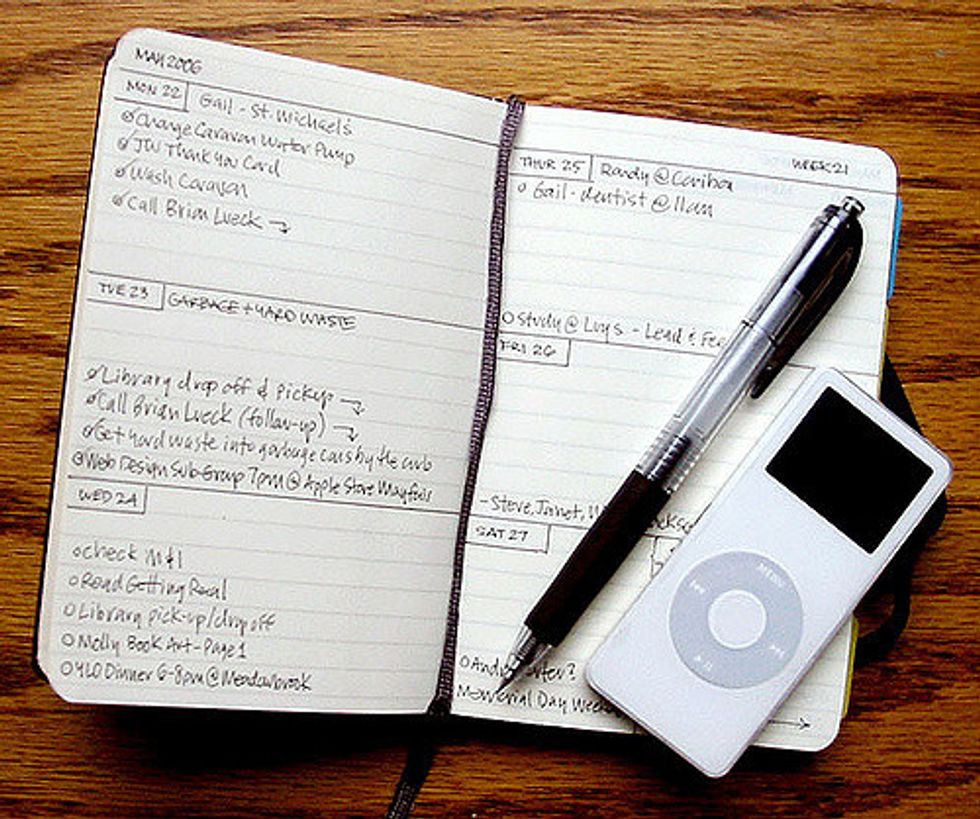 MAY 2006
MON 22
Gail - St. Michael's
Change Caravan Water Pump
JW Thank You Card
Wash Caravan
Call Brian Lueck
TUE 23
GARBAGE + YARD WASTE
Library drop off & pickup
Call Brian Lueck (follow-up)
Get yard waste into garbage cans by the curb
Web Design Sub-Group 7pm @ Apple Store Mayfair
WED 24
check M&I
Read Getting Real
Library pick-up/drop off
Molly Book Art - Page 1
YLO Dinner 6-8pm @ Meadowbrook
WEEK 21
THUR 25
Randy @ Caribou
Gail - dentist @ 11am
Study @ Luy's - Lead &
FRI 26
- Steve, Janet,
SAT 27
Memorial Day
MENU